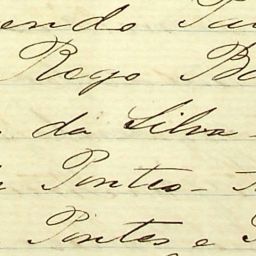 endo
Rego Ba
da Silva
Pontes -
Pontes e